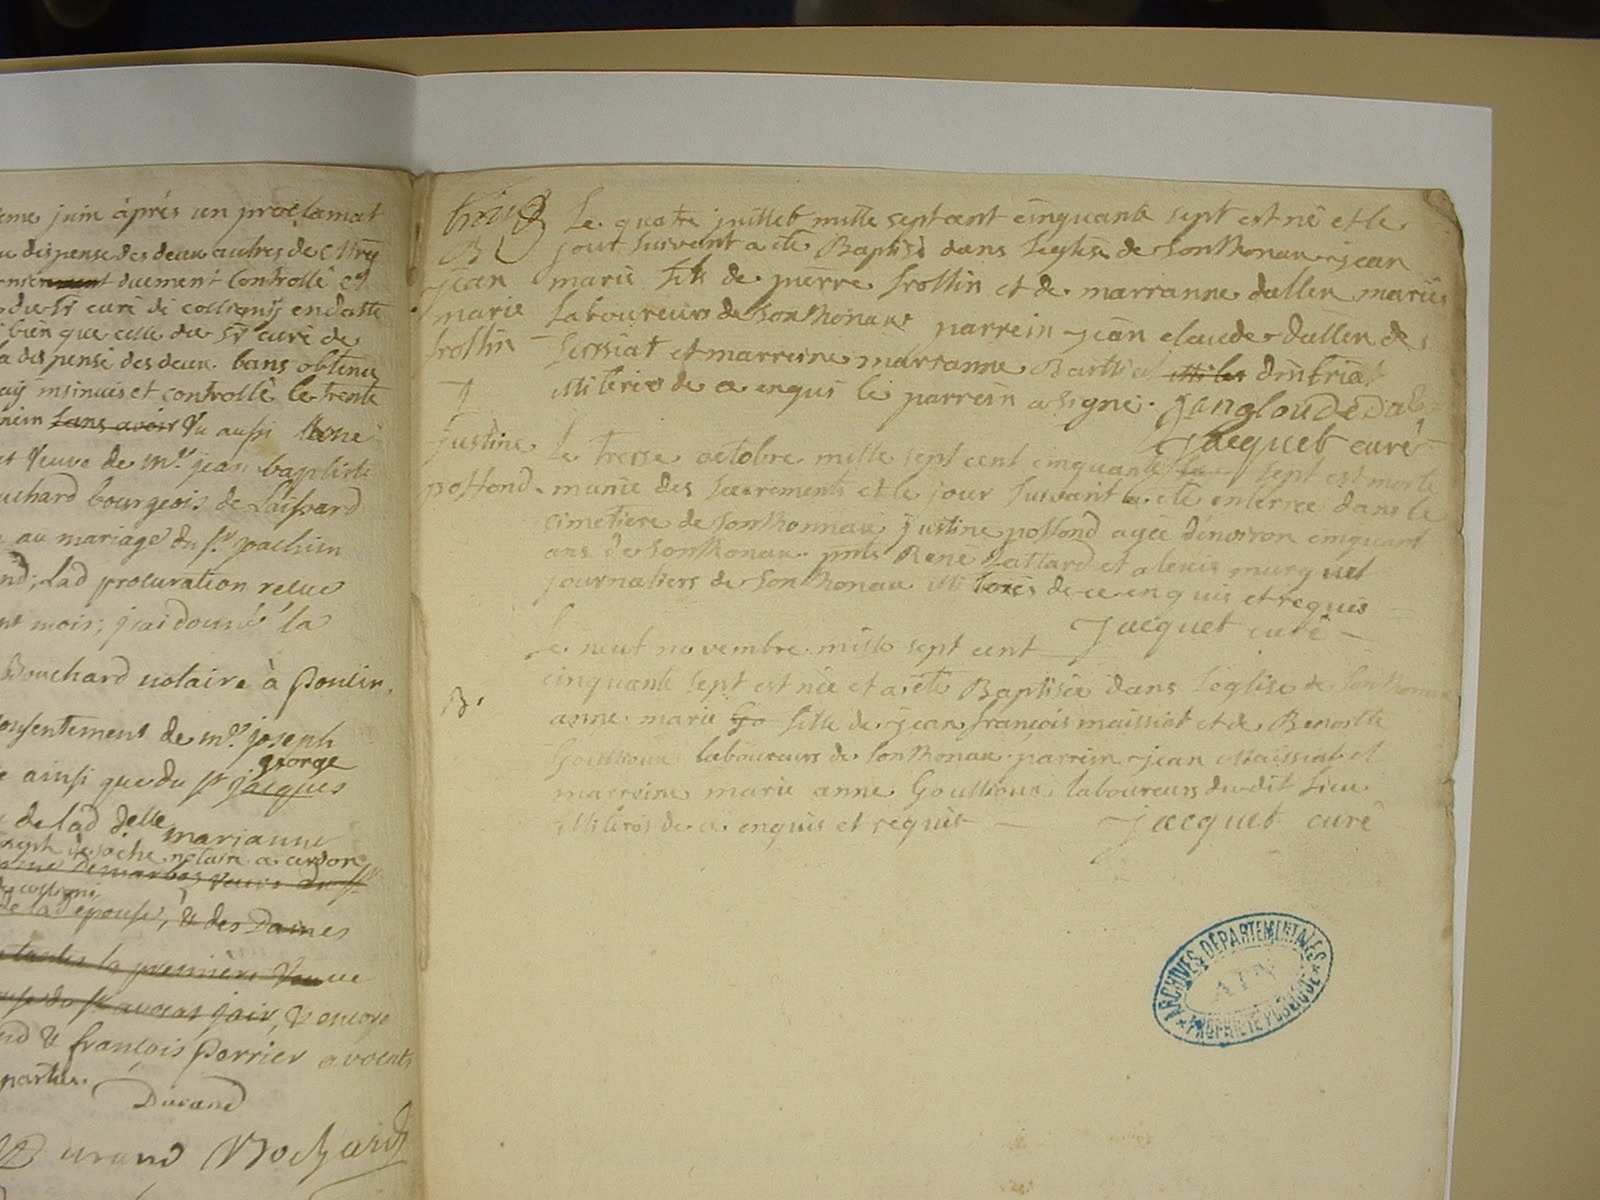 eme juin áprés un proclamat
dispense des deux autres de
duement Controllé et
du Sr curé de colligny en datte
bien que celle du Sr curé de
la dispense des deux bans obtenue
insinués et controllé le trente
sans avoir Vu aussi
Veuve de mre jean baptiste
bourgeois de
au mariage du Sr joachim
Lad procuration recue
mois; j'ai donné la
Bouchard notaire à poncin,
consentement de mre joseph
george
ainsi que du sr jacques
de lad delle marianne
notaire a cerdon
de lad epouse, & des Dames
la premiere Veuve
du Sr avocat jair, & encore
& françois perrier avocats
parties.
Durand
Durand Bochard
trois
B
jean
marie
frottin
Le quatre juillet mille sept cent cinquante sept est né et le
jour suivant a été Baptisé dans l'eglise de Sonthonax jean
marie fils de pierre frottin et de marianne dallen mariés
Laboureurs de Sonthonax parrein jean claude dallen de
et marreine marianne Barthet
illiterés de ce enquis le parrein a signé. jangloude dal
Jacquet curé
justine
poffond
Le treize octobre mille sept cent cinquante sept est morte
munie des sacrements et le jour suivant a été enterree dans le
cimetiere de Sonthonnax justine poffond agée d'environ cinquant
ans de Sonthonax pnts René Paittard et alexis murquet
journaliers de Sonthonax illiterés de ce enquis et requis
Jacquet curé
Le neuf novembre mille sept cent
B.
cinquante sept est née et a été Baptisée dans l'eglise de Sonthonax
anne marie Go fille de jean françois maissiat et de Benoitte
Goullioux laboureurs de Sonthonax parrein jean Maissiat et
marreine marie anne Goullioux laboureurs dudit lieu
illiterés de ce enquis et requis Jacquet curé
ARCHIVES DÉPARTEMENTALES
AIN
PROPRIÉTÉ PUBLIQUE